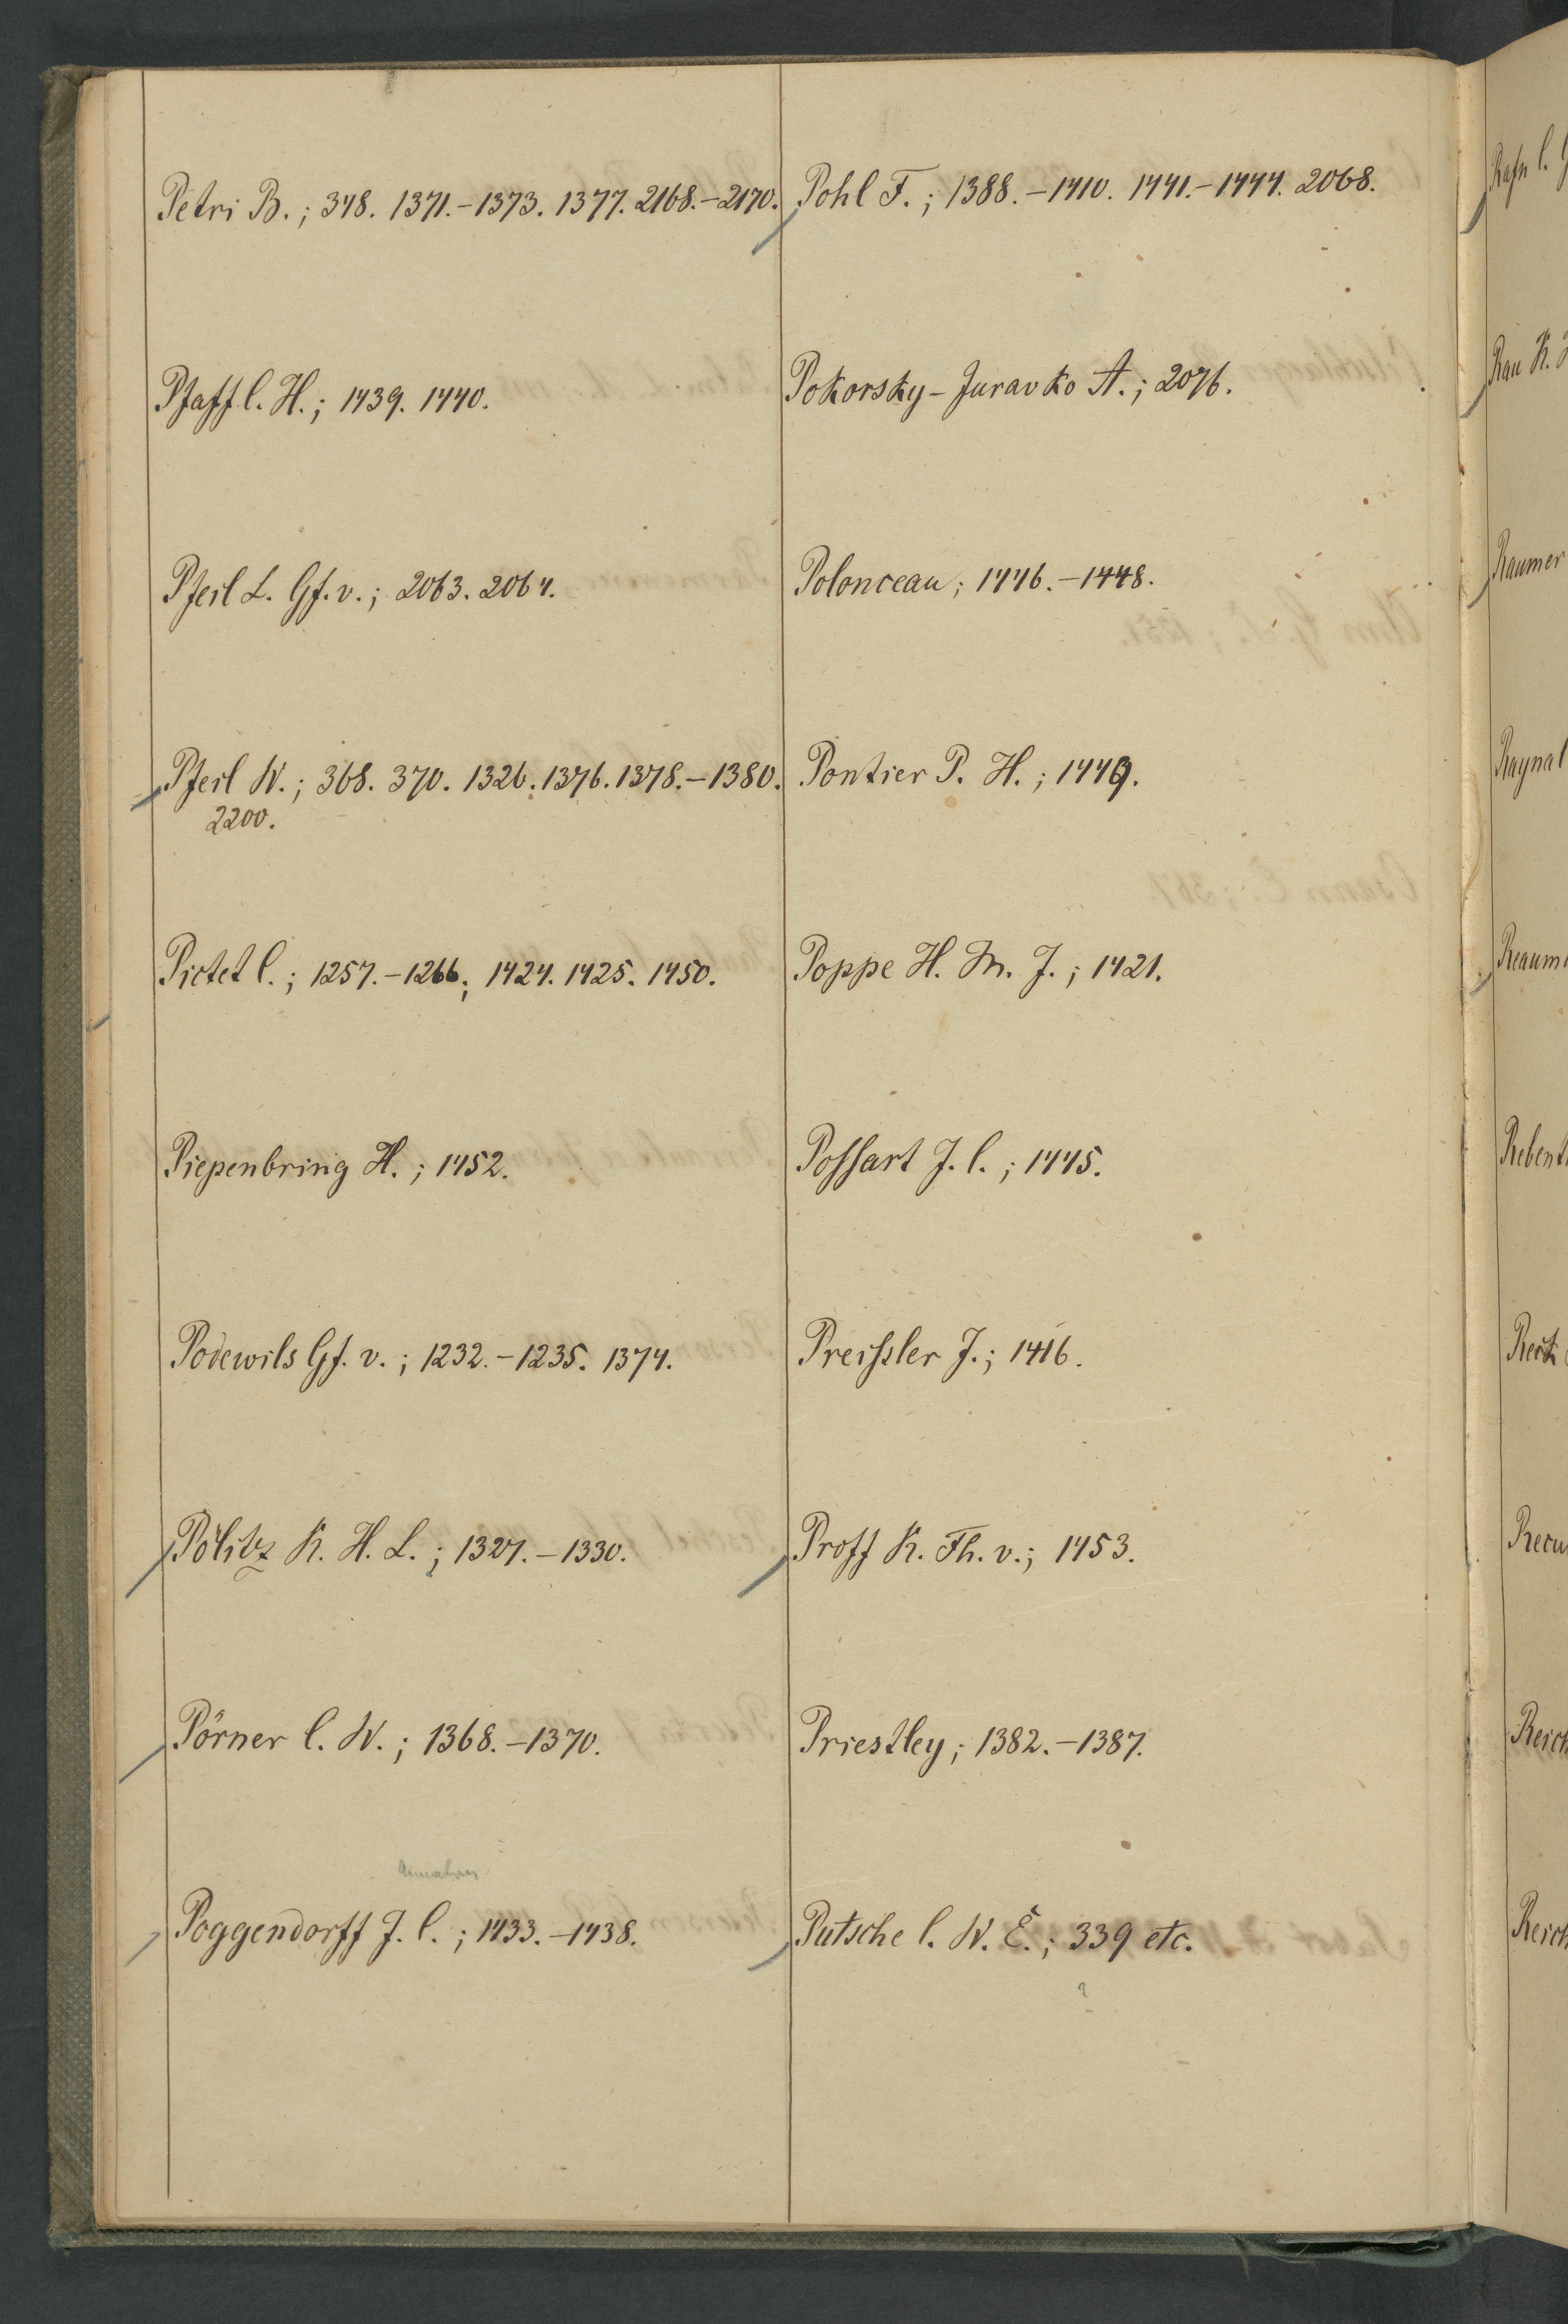 Petri B.; 348. 1371.-1373. 1377. 2168.-2170.
Pfaff C. H.; 1439. 1440.
Pfeil L. Gf. v.; 2063. 2064.
Pfeil W.; 368. 370. 1326. 1376. 1378.-1380.
2200.
Pictet C.; 1257.-1266.; 1424. 1425. 1450.
Piepenbring H.; 1452.
Podewils Gf. v.; 1232.-1235. 1374.
Pölitz K. H. L.; 1327.-1330.
Pörner C. W.; 1368.-1370.
Poggendorff J. C.; 1433.-1438.
Pohl F.; 1388.-1410. 1441.-1444. 2068.
Pokorsky-Juravko A.; 2076.
Polonceau; 1446.-1448.
Pontier P. H.; 1449.
Poppe H. M. J.; 1421.
Poſsart J. C.; 1445.
Preiſsler J.; 1416.
Proff K. Th. v.; 1453.
Priestley; 1382.-1387.
Putsche C. W. E.; 339 etc.
?
Rafn C. G
Rau K. H
Raumer
Raynal
Reaum
Rebent
Reich
Reich